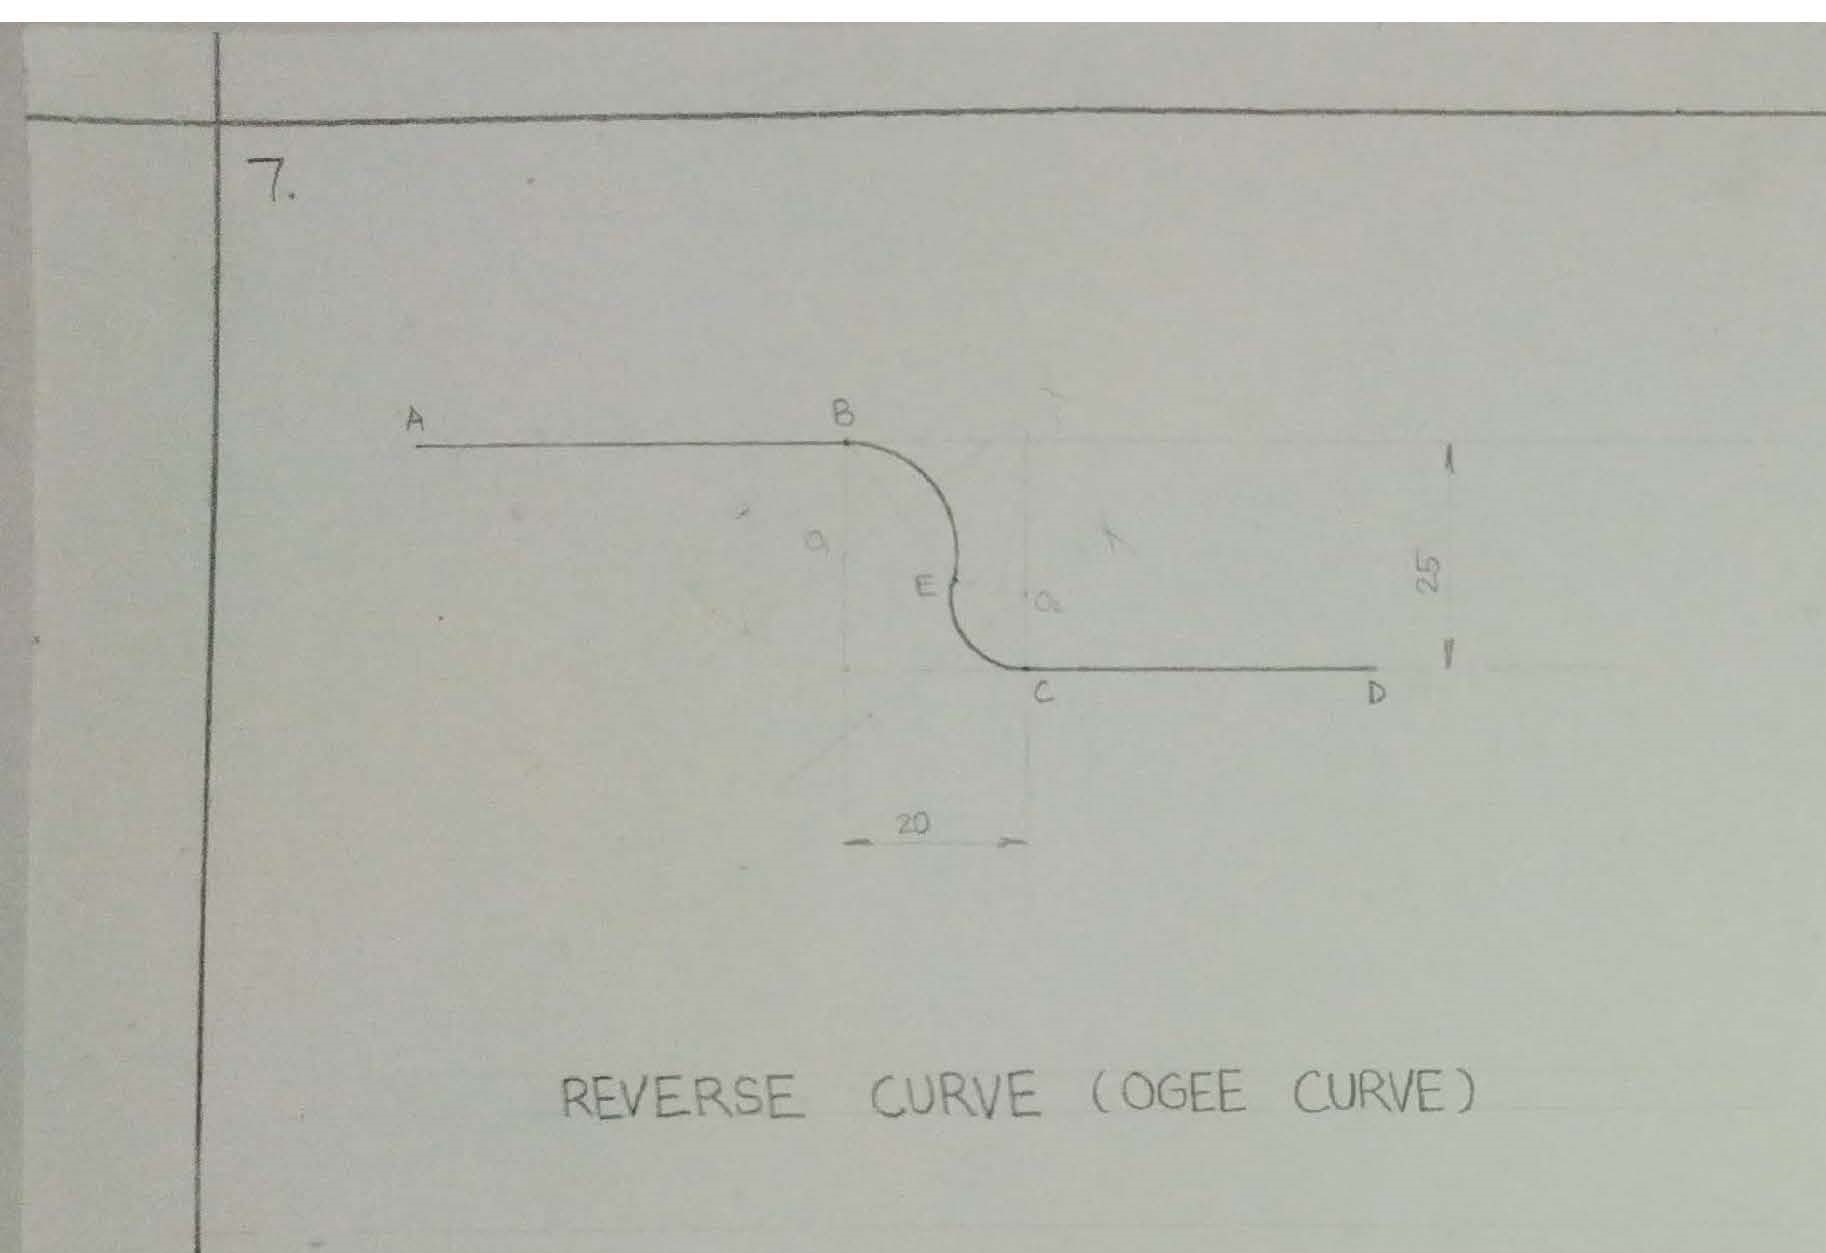 7.
A
B
O₁
E
O₂
25
C
D
20
REVERSE CURVE (OGEE CURVE)